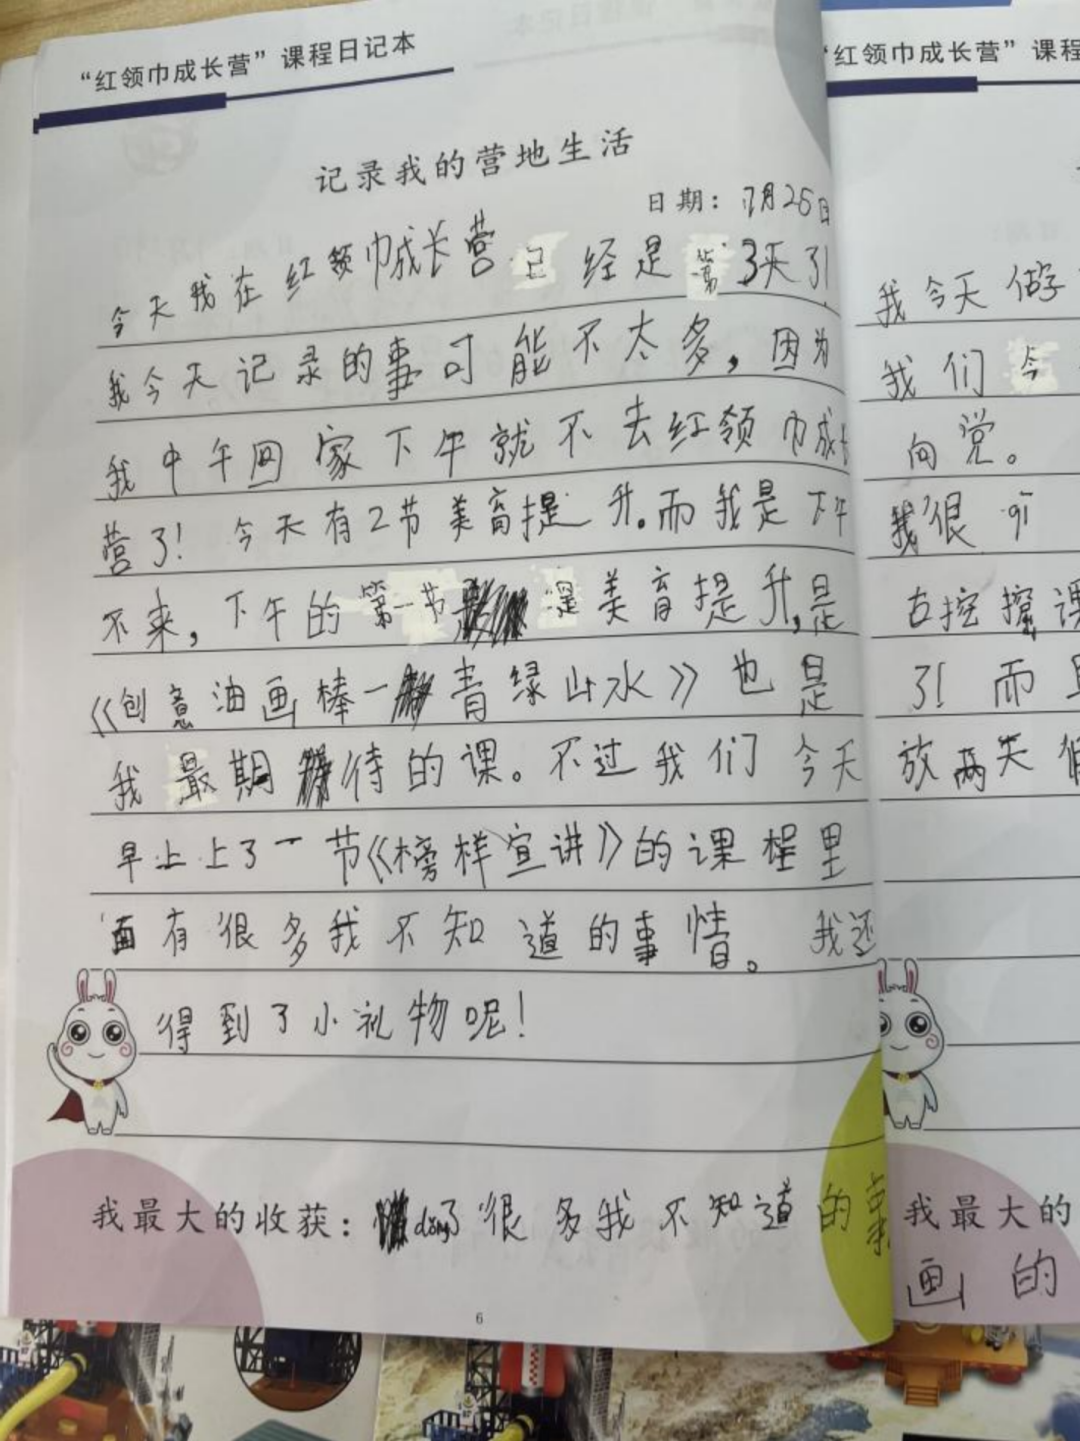 “红领巾成长营”课程日记本
记录我的营地生活
日期：7月26日
今天我在红领巾成长营已经是第3天了!
我今天记录的事可能不太多，因为
我中午回家下午就不去红领巾成长
营了! 今天有2节美育提升。而我是下午
不来，下午的第一节是美育提升，是
《创意油画棒一青绿山水》也是
我最期待的课。不过我们今天
早上上了一节《榜样宣讲》的课程里
面有很多我不知道的事情。我还
得到了小礼物呢!
我最大的收获：dǒng了很多我不知道的事
6
“红领巾成长营”课程
我今天做
我们今
向党。
我很
古挖
了! 而且
放两天假
我最大的
画的